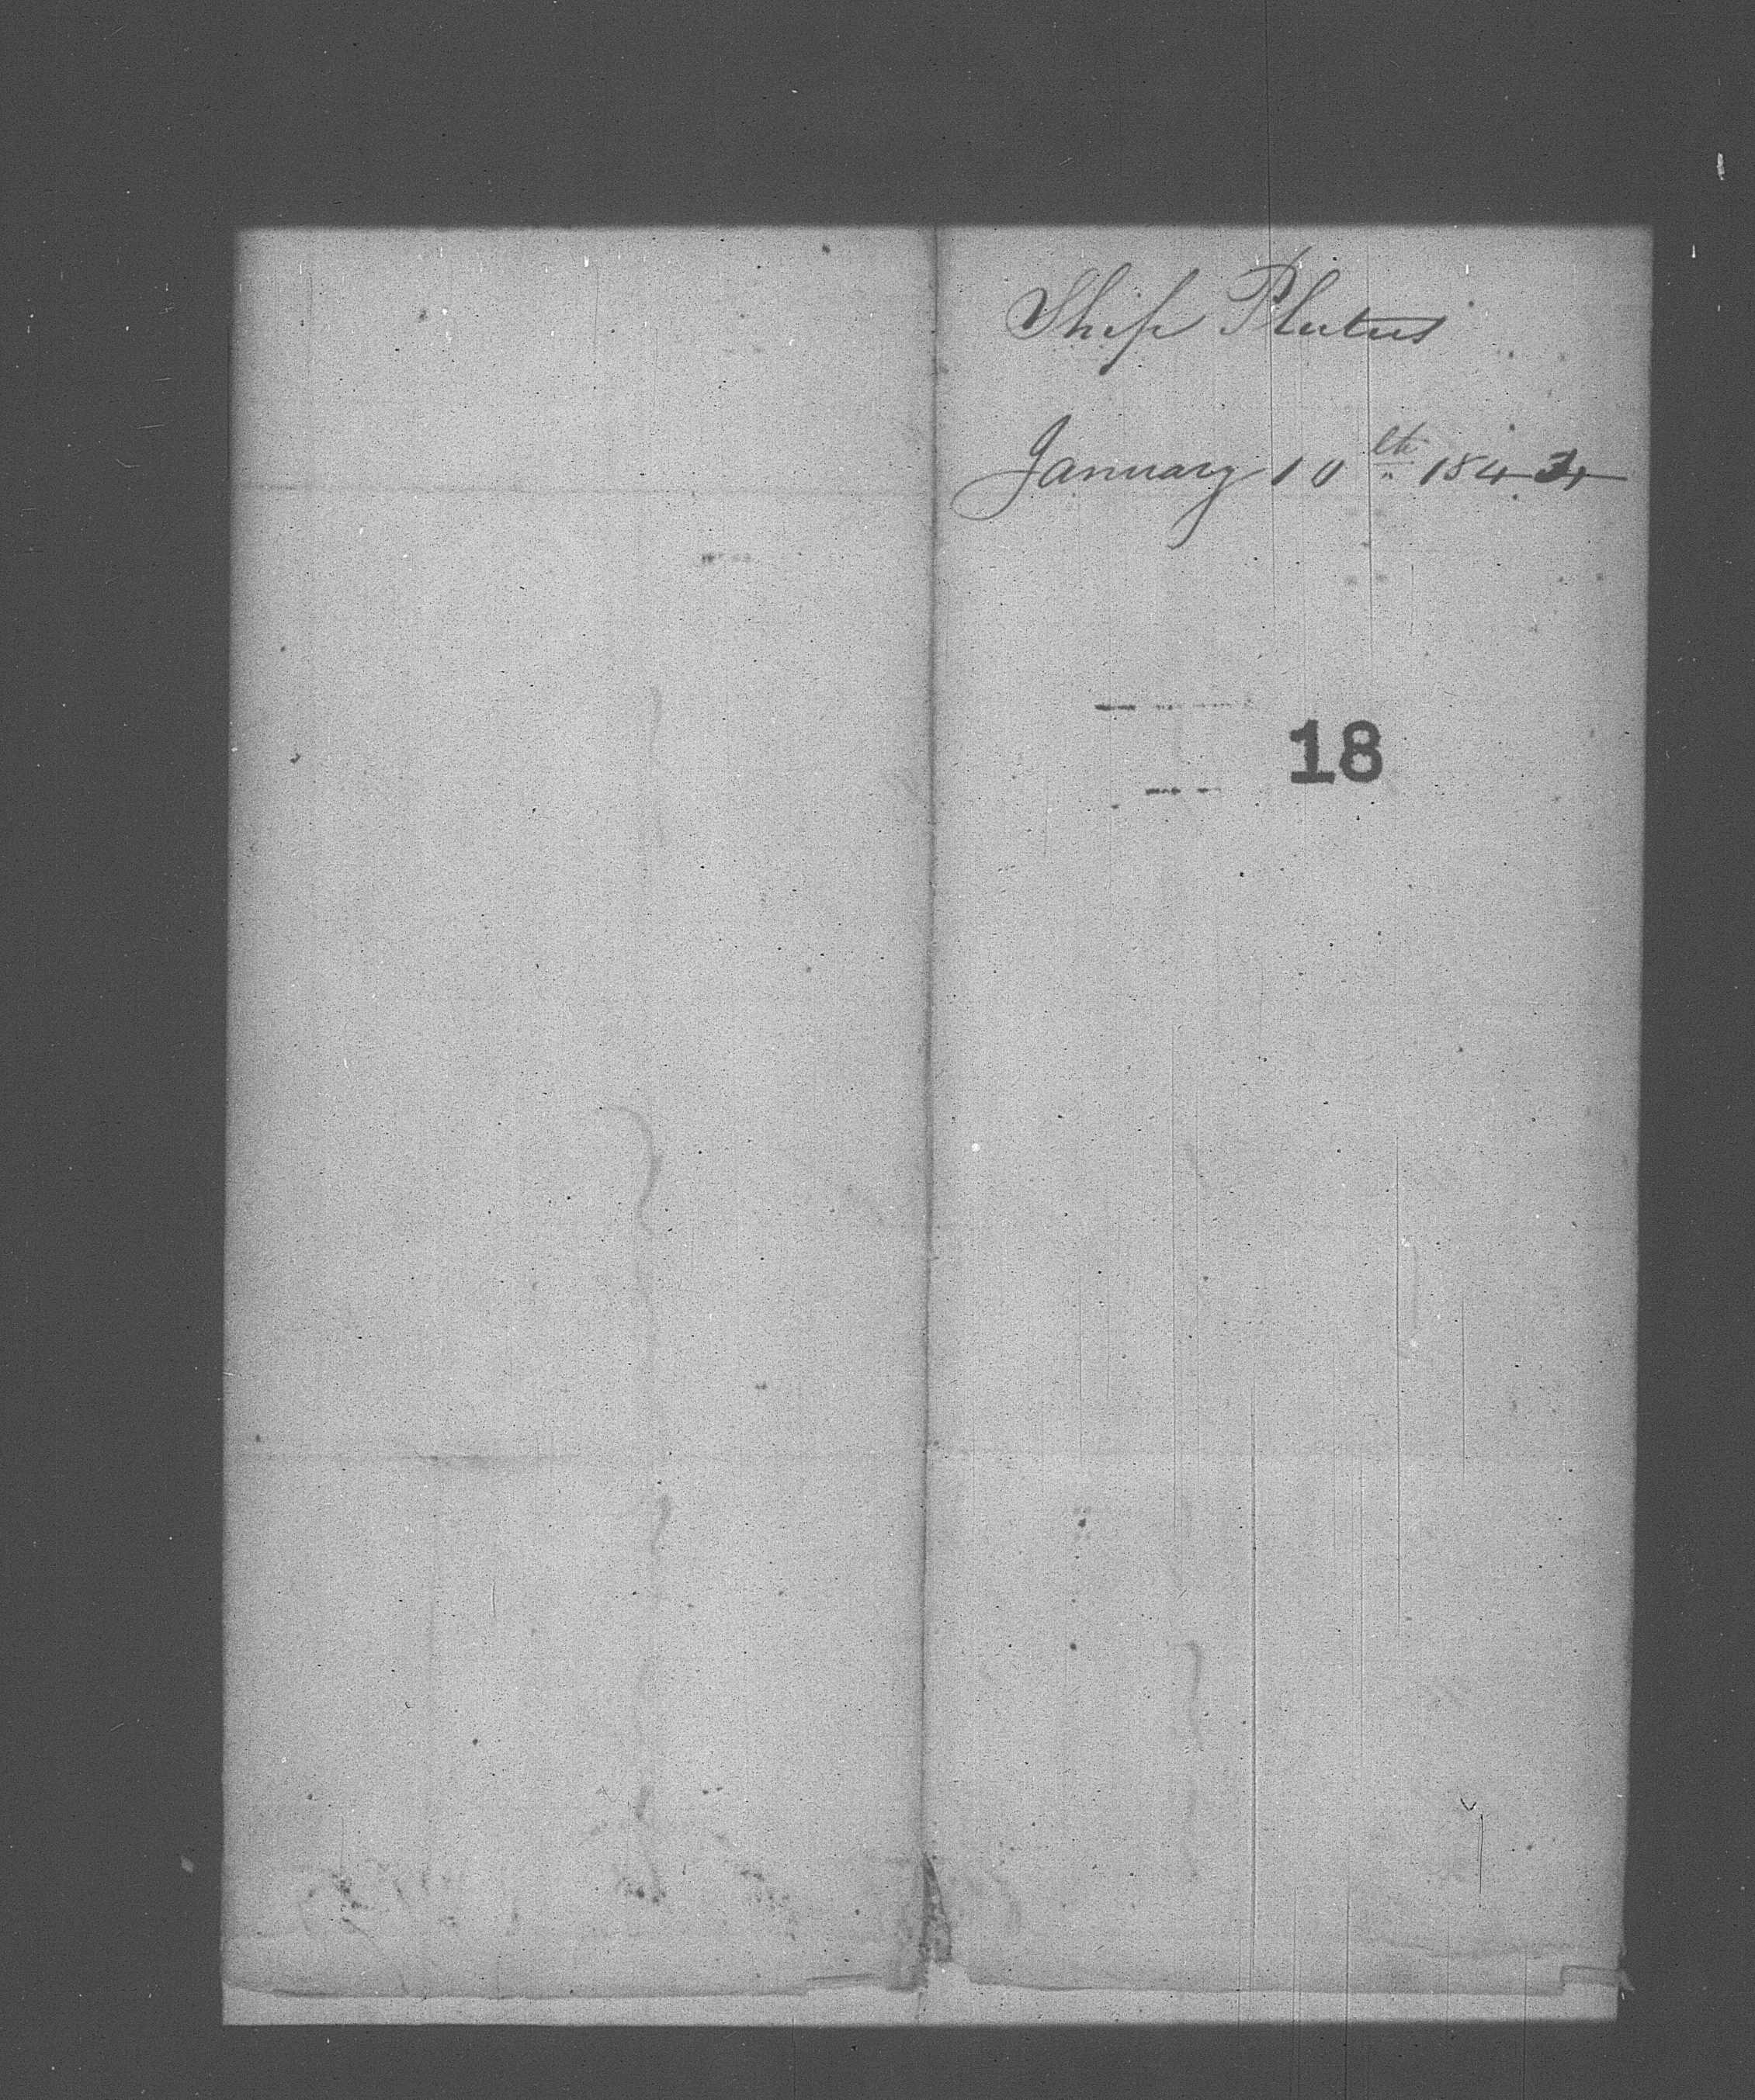 Ship Plutus
January 10th 1843
18